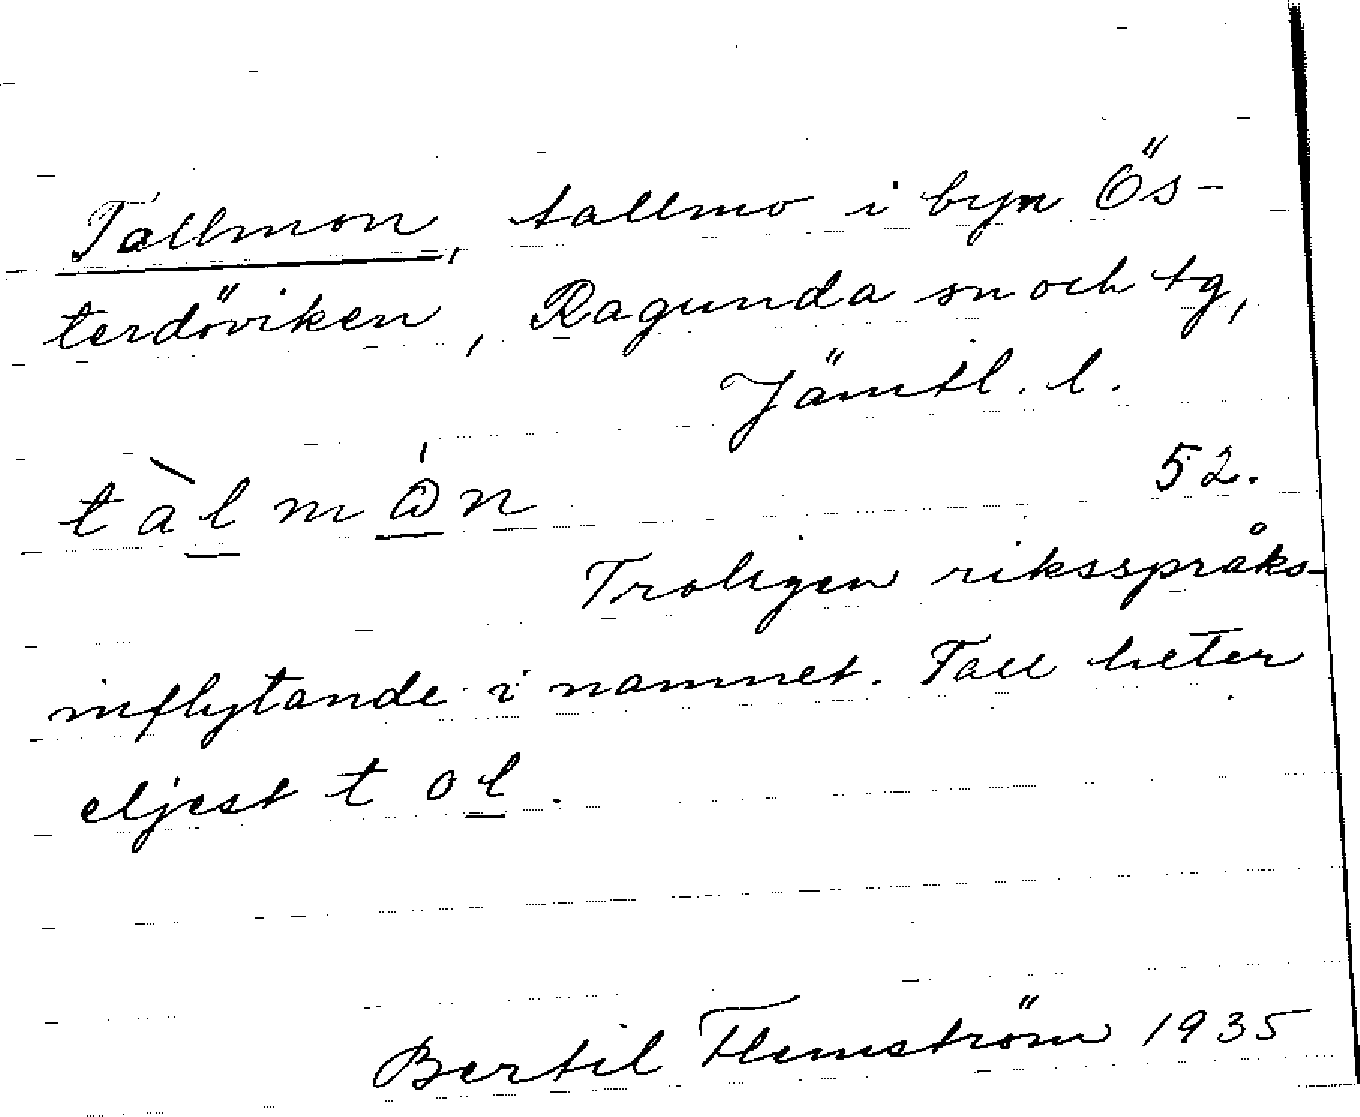 Tallmon, tallmo i byn Ös-
terdöviken, Ragunda sn och tg,
Jämtl. l.
tàlmω̇n 52.
Troligen riksspråks-
inflytande i namnet. Tall heter
eljest t o l.
Bertil Flemström 1935